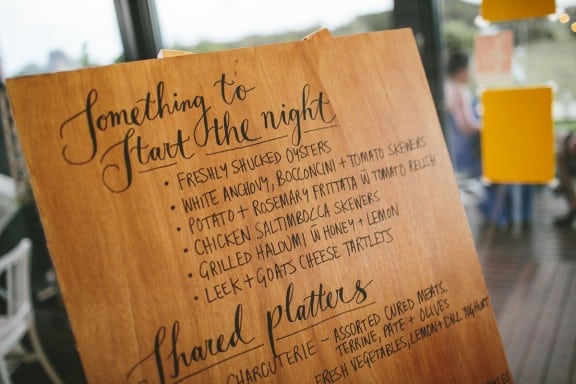 Something to
Start the night
• FRESHLY SHUCKED OYSTERS
• WHITE ANCHOVY, BOCCONCINI + TOMATO SKEWERS
• POTATO + ROSEMARY FRITTATA w̅ TOMATO RELISH
• CHICKEN SALTIMBOCCA SKEWERS
• GRILLED HALOUMI w̅ HONEY + LEMON
• LEEK + GOATS CHEESE TARTLETS
Shared platters
CHARCUTERIE - ASSORTED CURED MEATS,
TERRINE, PATE + OLIVES
FRESH VEGETABLES, LEMON + DILL YOGHURT